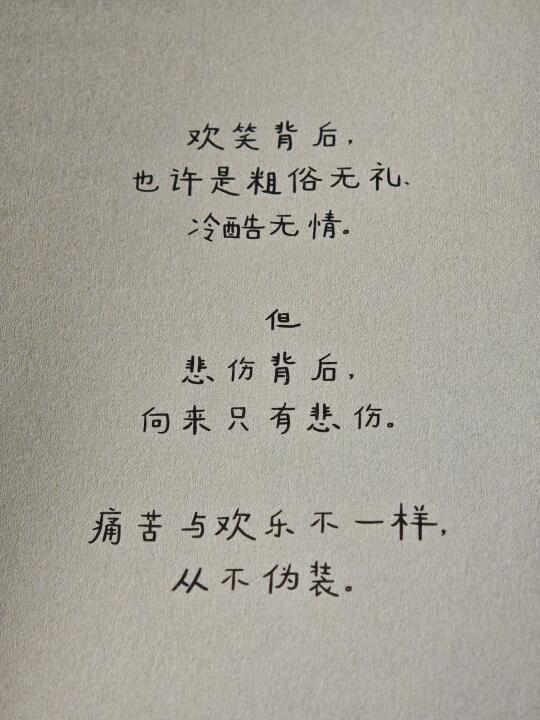 欢笑背后，
也许是粗俗无礼、
冷酷无情。
但
悲伤背后，
向来只有悲伤。
痛苦与欢乐不一样，
从不伪装。